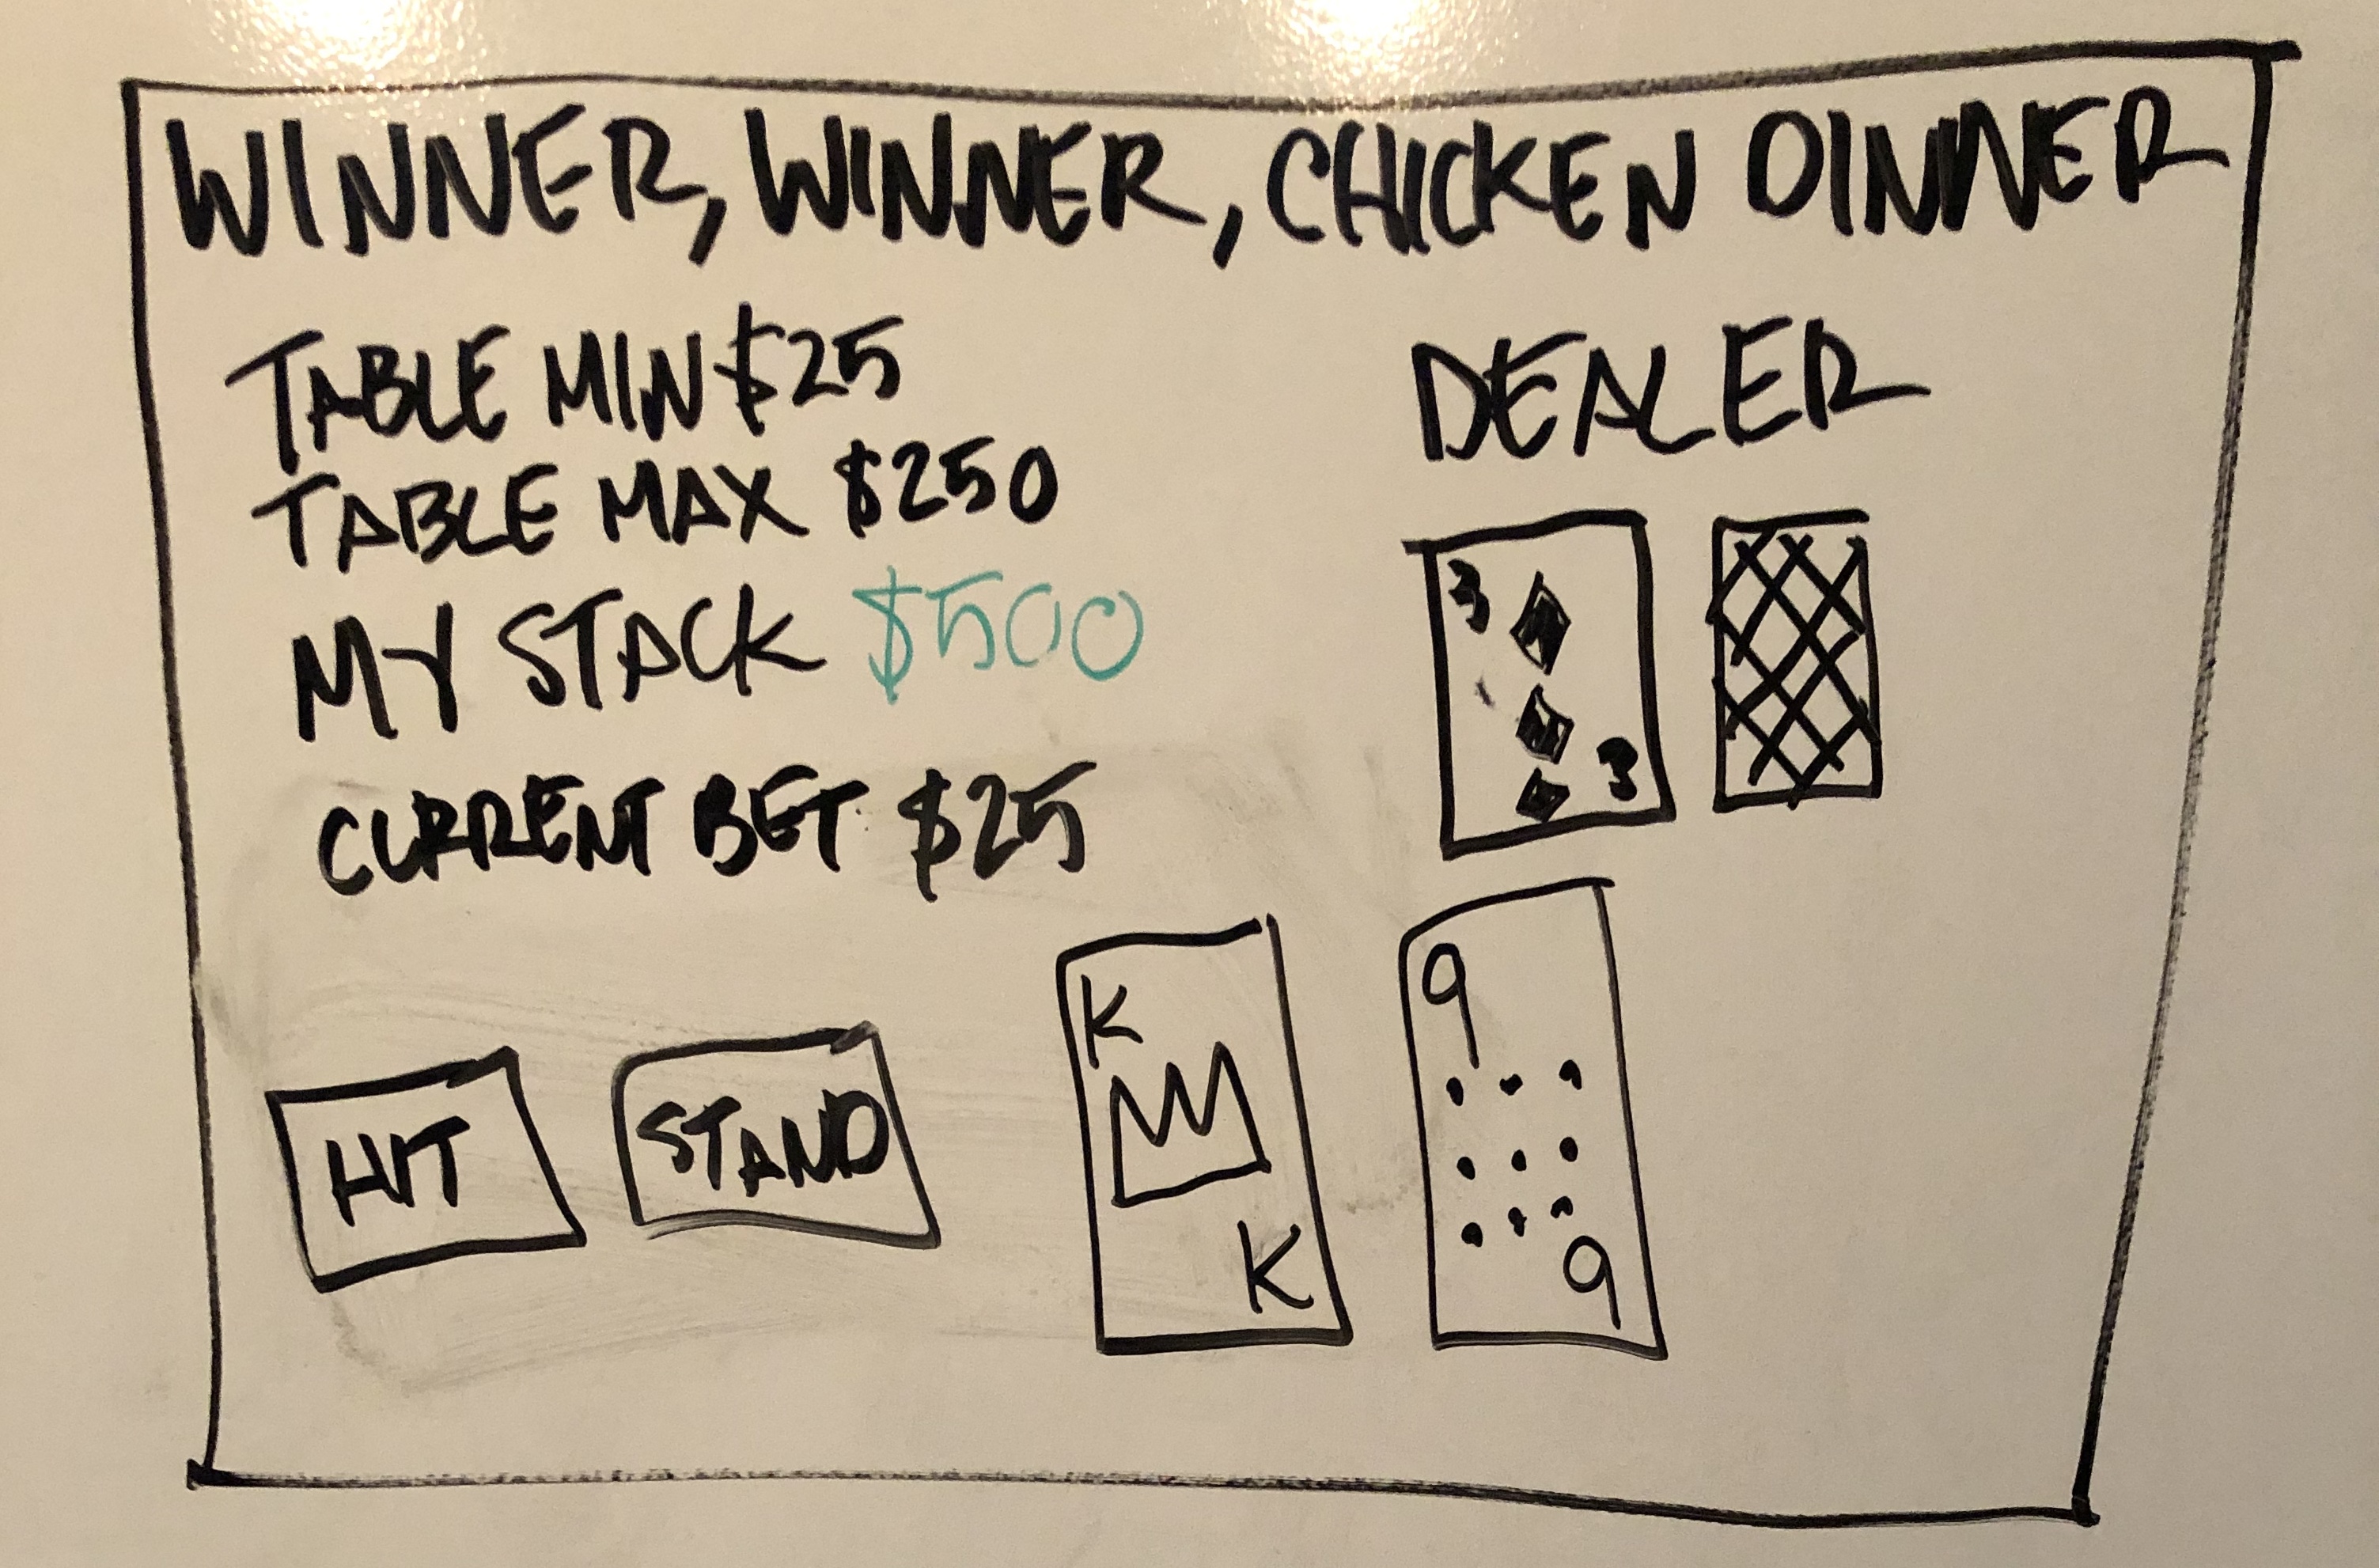 WINNER, WINNER, CHICKEN DINNER
TABLE MIN $25
TABLE MAX $250
MY STACK $500
CURRENT BET $25
DEALER
3
3
HIT
STAND
K
K
9
9